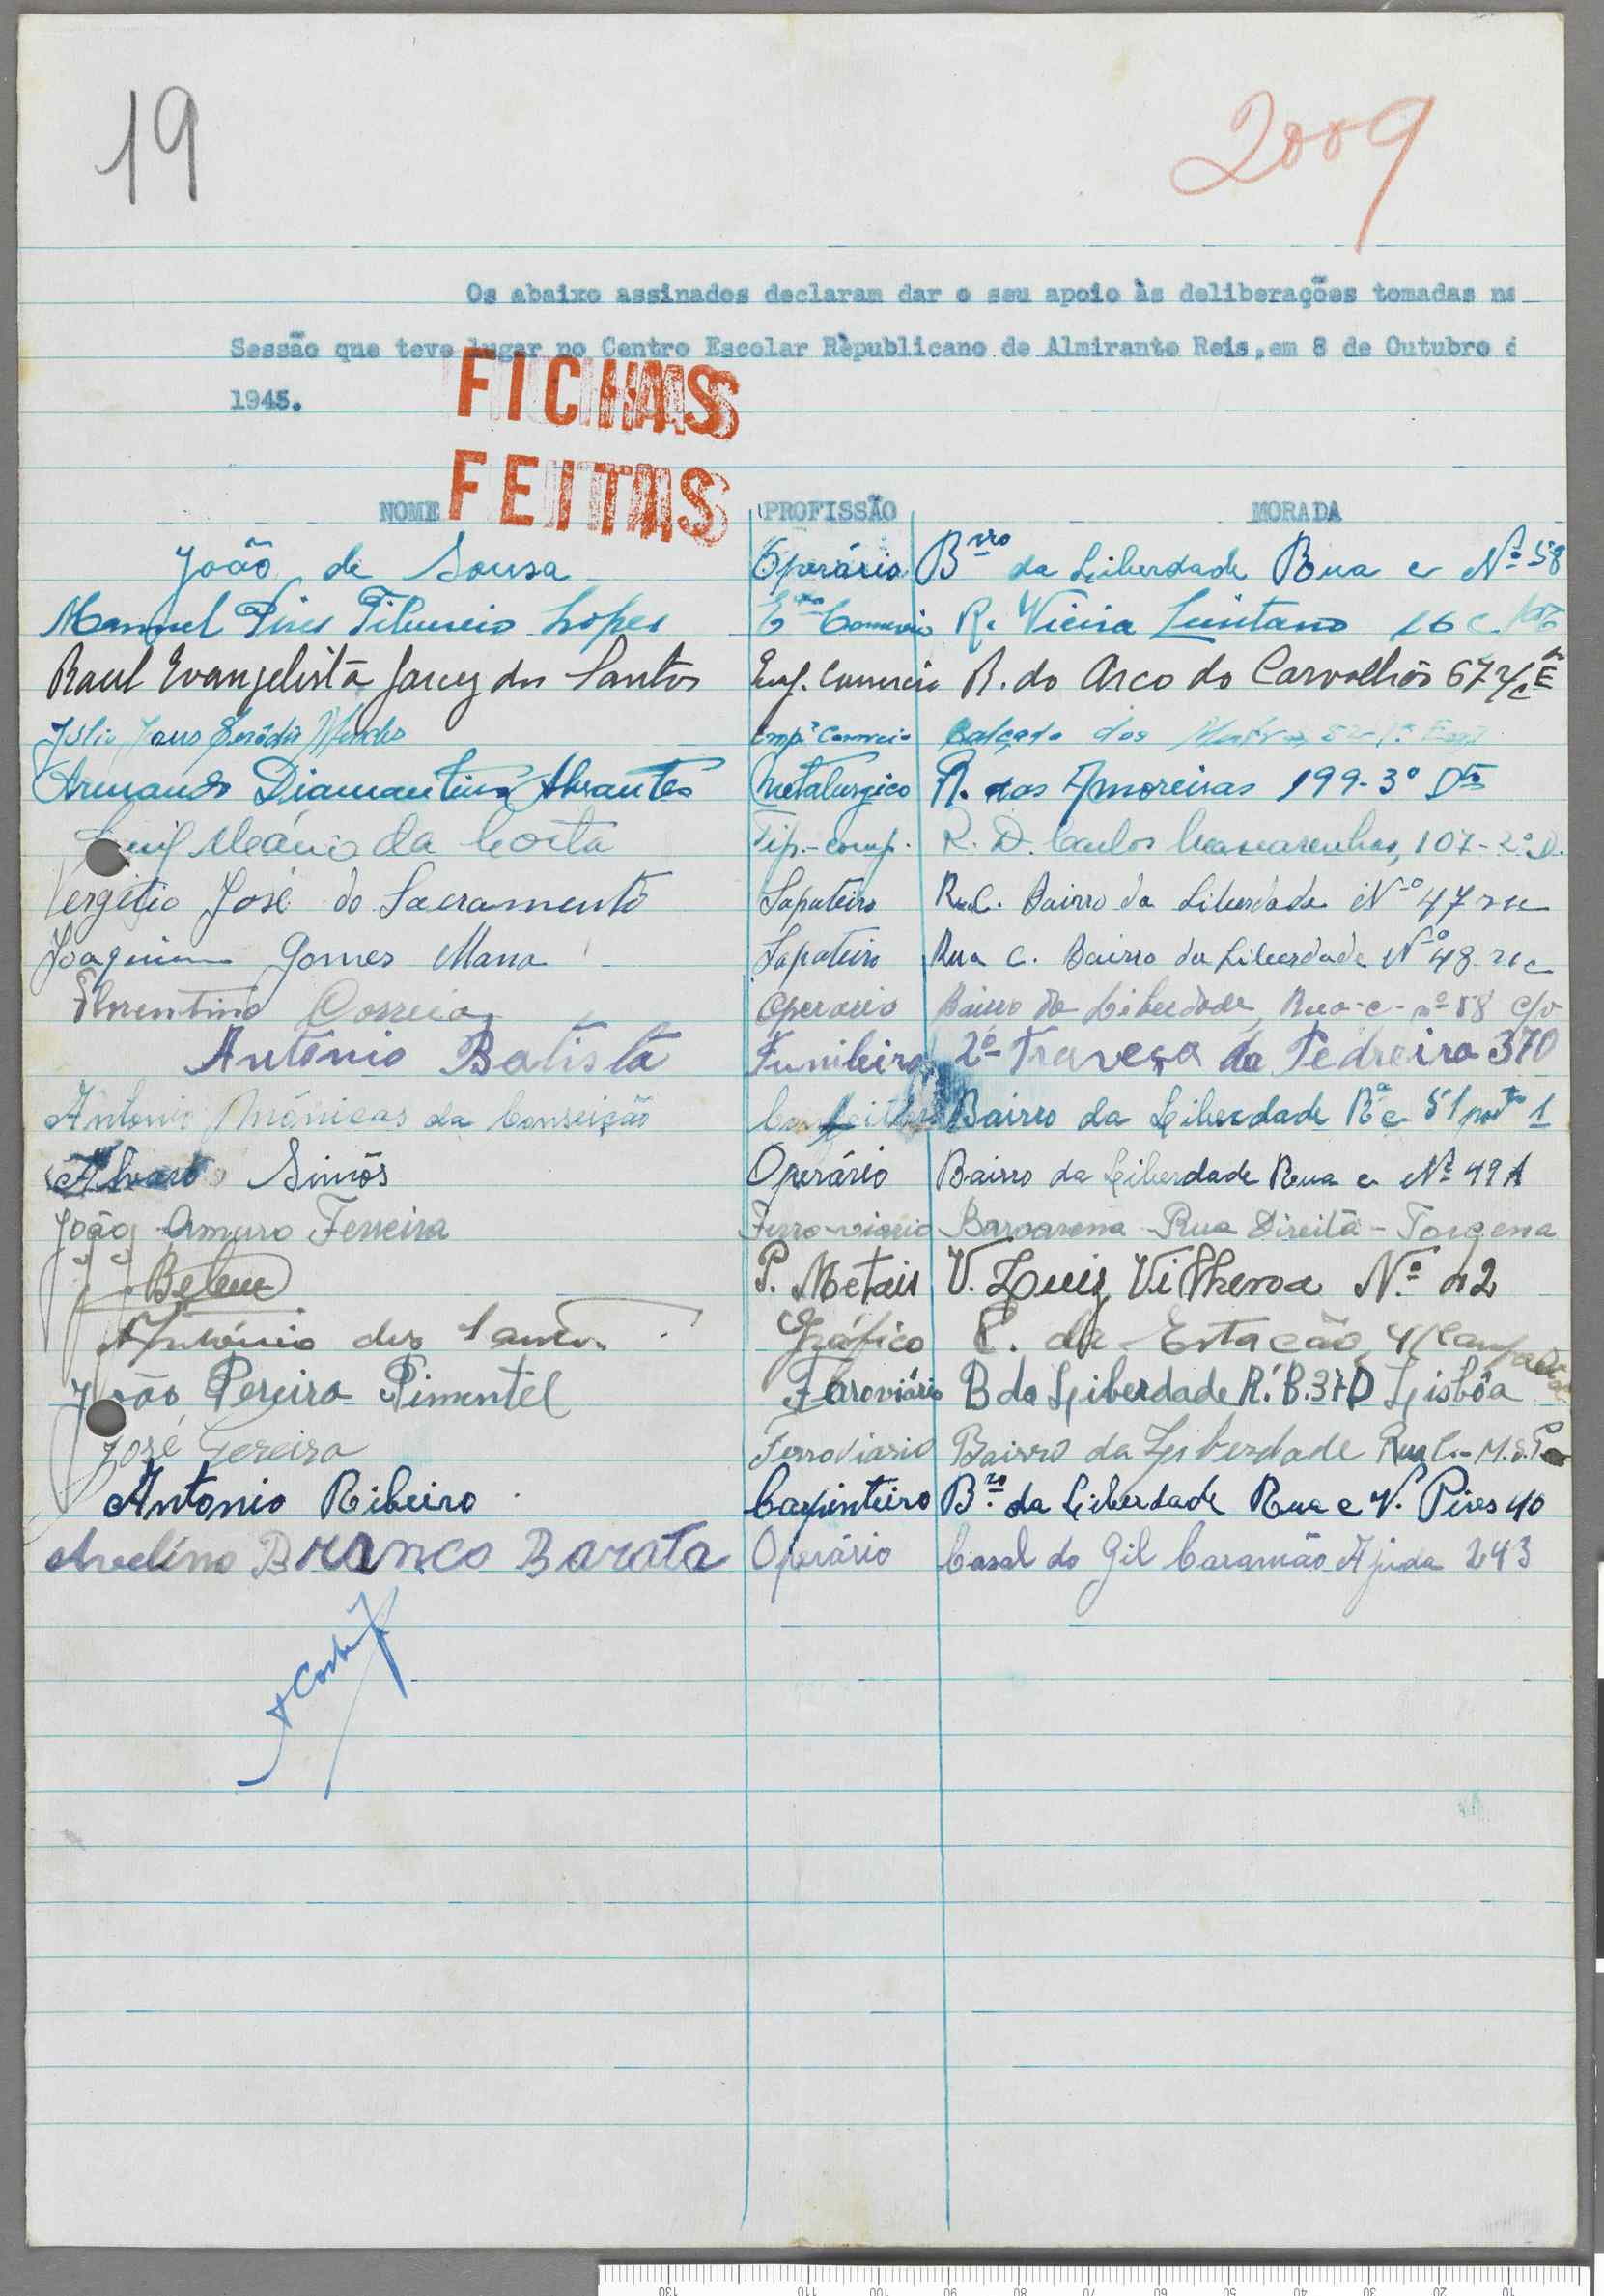 19
2009
Os abaixo assinados declaram dar o seu apoio às deliberações tomadas na
Sessão que teve lugar no Centro Escolar Rèpublicano de Almirante Reis,em 8 de Outubro d
1945.
FICHAS
FEITAS
NOME PROFISSÃO MORADA
João de Sousa Operário Brro da Liberdade Rua C Nº 58
Manuel Pires Lopes Comercio R. Vieira Lusitano 16 C
Raul Evangelista dos Santos Emp. Comercio R. do Arco do Carvalhão 67 r/c E
Mendes Empº Comercio Calçada dos
Armando Diamantino Abrantes Metalurgico R. das Amoreiras 199-3º Dto
da Costa Tip.-comp. R. D. Carlos Mascarenhas, 107-2º D.
Vergilio José do Sacramento Sapateiro R. C. Bairro da Liberdade Nº 47 r/c
Joaquim Gomes Mana Sapateiro Rua C. Bairro da Liberdade Nº 48 r/c
Florentino Correia Operario Bairro da Liberdade, Rua-C-nº 58 c/v
António Batista Funileiro 2º Travesa da Pedreira 370
Antonio Mónicas da Conseição Bairro da Liberdade Rª C 51 porta 1
Alvaro Simõs Operário Bairro da Liberdade Rua C Nº 49 A
João Amaro Ferreira Ferro-viario Barcarena - Rua Direita - Torcena
P. Metais V. Luiz Vilhena Nº 12
António dos Santos Gráfico C. da Estação, 4
João Pereira Pimentel Faroviário B da Liberdade R. B. 37D Lisbôa
José Pereira Ferroviario Bairro da Liberdade Rua C- M.S.P.
Antonio Ribeiro Carpinteiro Bro. da Liberdade Rua C V. Pires 40
Avelino Branco Barata Operário Casal do Gil Caramão Ajuda 243